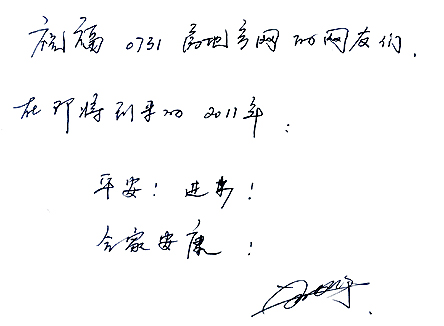 祝福 0731 房地产网的网友们.
在即将到来的 2011年:
平安! 进步!
合家安康!